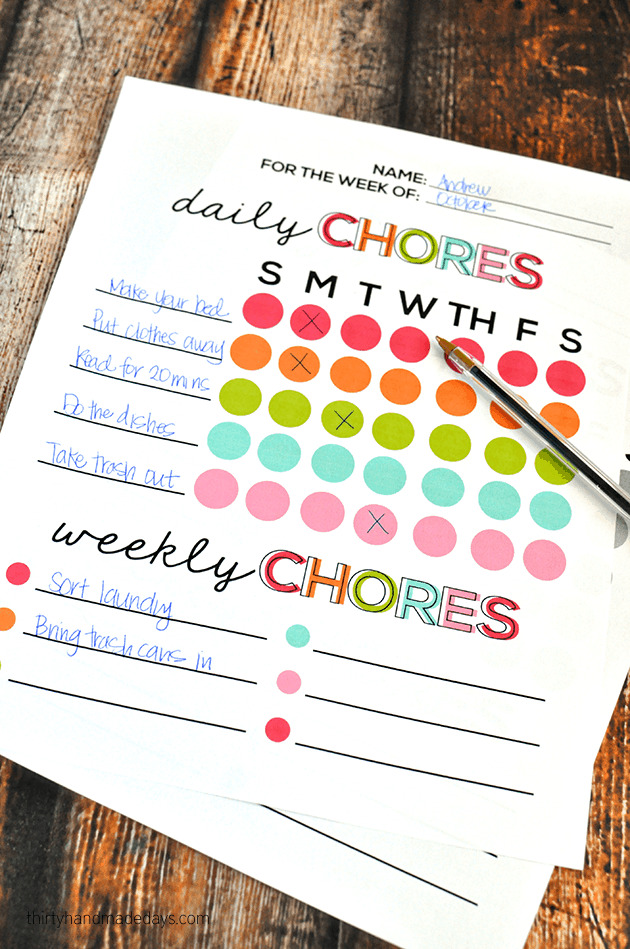 NAME: Andrew
FOR THE WEEK OF: October
daily CHORES
S M T W TH F S
Make your bed X
Put clothes away X
Read for 20 mins X
Do the dishes
Take trash out X
weekly CHORES
Sort laundry
Bring trash cans in
thirtyhandmadedays.com